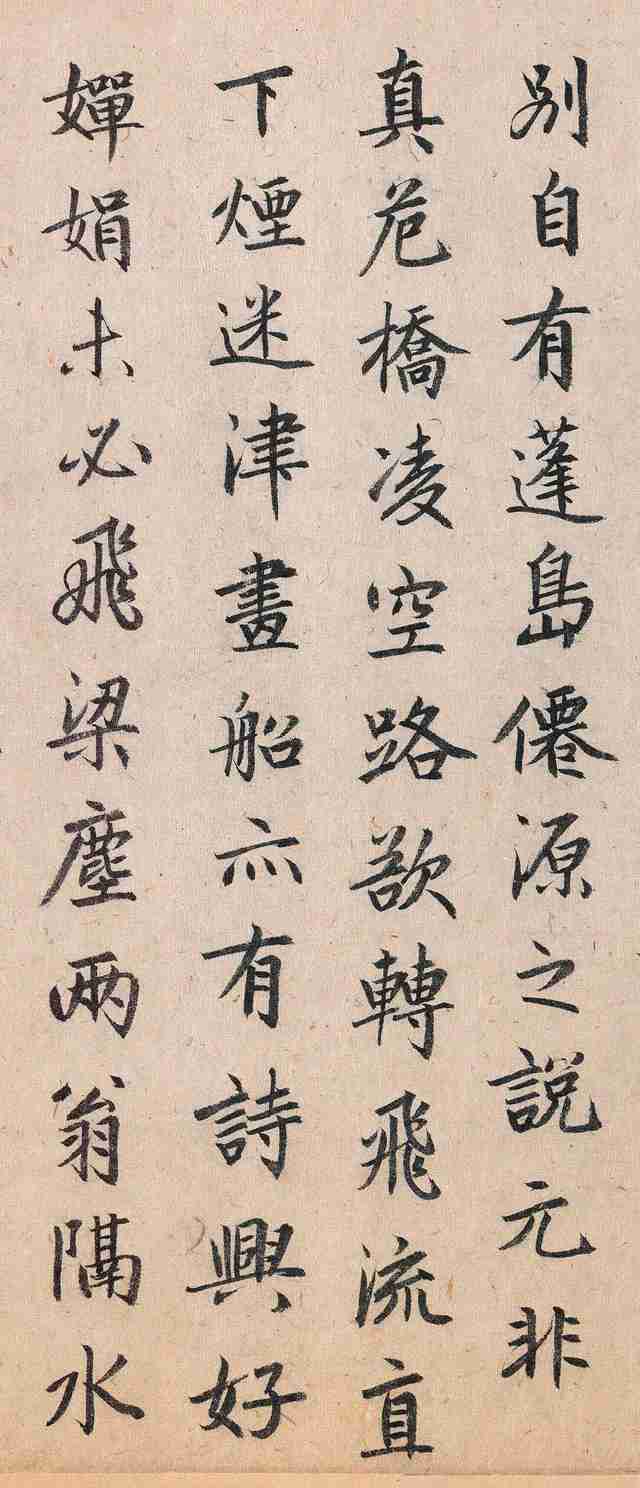 別自有蓬島僊源之説元非
真危橋凌空路欲轉飛流直
下煙迷津畫船亦有詩興好
嬋娟未必飛梁塵兩翁隔水